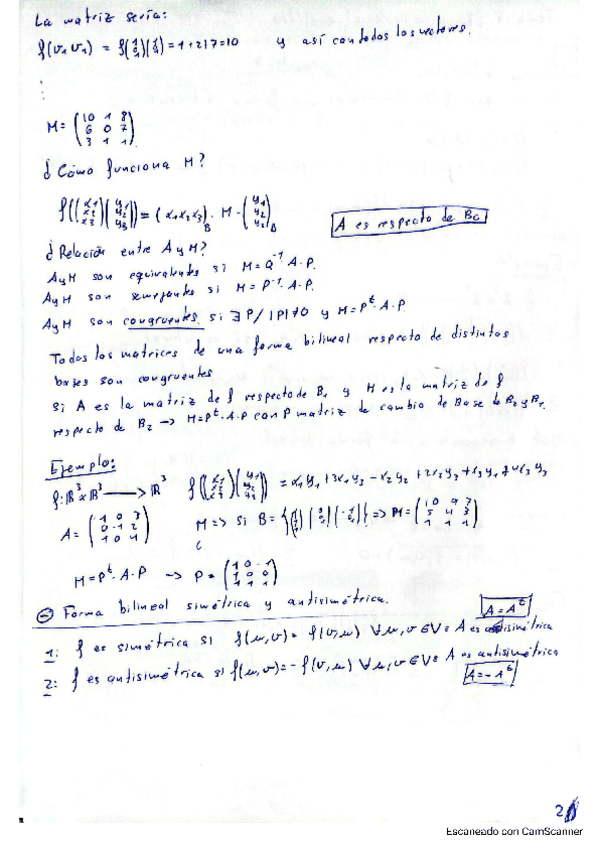 La matriz sería:
f(v₁ v₁) = f(1 0 1)(1 1 1) = 1+2+7=10 y así con todos los vectores.
⋮
M= (10 1 8
6 0 7
3 1 1)
¿Cómo funciona M?
f((x₁ x₂ x₃)(y₁ y₂ y₃)) = (x₁ x₂ x₃)B · M · (y₁ y₂ y₃)B
A es respecto de Bc
¿Relación entre A y M?
A y M son equivalentes si M=Q⁻¹·A·P.
A y M son semejantes si M=P⁻¹·A·P.
A y M son congruentes si ∃P/ |P|≠0 y M=Pᵗ·A·P
Todas las matrices de una forma bilineal respecto de distintas
bases son congruentes
Si A es la matriz de f respecto de B₁ y M es la matriz de f
respecto de B₂ → M=Pᵗ·A·P con P matriz de cambio de Base de B₂ y B₁.
Ejemplo:
f: ℝ³×ℝ³ → ℝ³ f((x₁ x₂ x₃)(y₁ y₂ y₃)) = x₁y₁+3x₁y₃-x₂y₂+2x₂y₃+x₃y₁+4x₃y₃
A= (1 0 3
0 -1 2
1 0 4)
M => si B= => M=
M=Pᵗ·A·P → P= (1 0 -1
1 0 0
1 1 1)
Forma bilineal simétrica y antisimétrica.
A=Aᵗ
1: f es simétrica si f(u,v)= f(v,u) ∀u,v∈V= A es simétrica
2: f es antisimétrica si f(u,v)=-f(v,u) ∀u,v∈V= A es antisimétrica
A=-Aᵗ
2
Escaneado con CamScanner